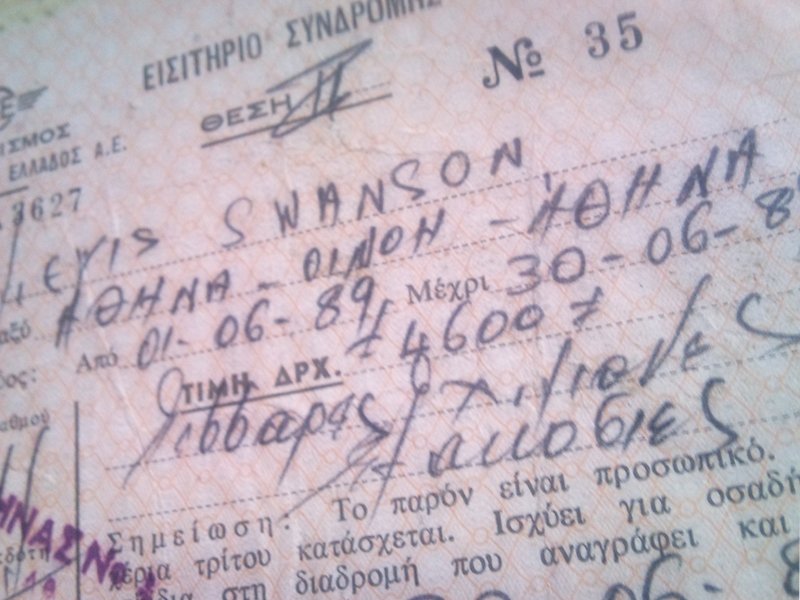 ΕΙΣΙΤΗΡΙΟ ΣΥΝΔΡΟΜΗΣ
Νº 35
ΘΕΣΗ II
ΙΣΜΟΣ
ΕΛΛΑΔΟΣ Α.Ε.
3627
LEVIS SWANSON
ΑΘΗΝΑ - ΟΙΝΟΗ - ΑΘΗΝΑ
Από 01-06-89 Μέχρι 30-06-8
ΤΙΜΗ ΔΡΧ. 4600
Τέσσαρες χιλιάδες
εξακόσιες
Σημείωση: Το παρόν είναι προσωπικό.
χέρια τρίτου κατάσχεται. Ισχύει για οσαδή
στη διαδρομή που αναγράφει και
ΗΝΑΣ Νο